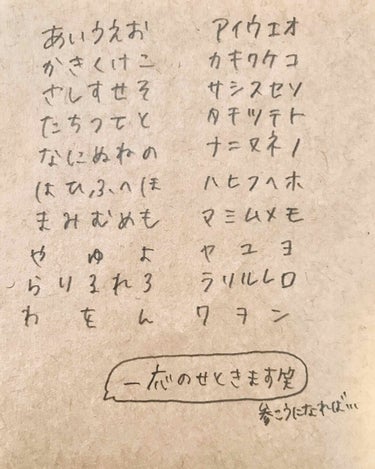 あいうえお アイウエオ
かきくけこ カキクケコ
さしすせそ サシスセソ
たちつてと タチツテト
なにぬねの ナニヌネノ
はひふへほ ハヒフヘホ
まみむめも マミムメモ
や ゆ よ ヤ ユ ヨ
らりるれろ ラリルレロ
わ を ん ワ ヲ ン
一応のせときます笑
参こうになれば…